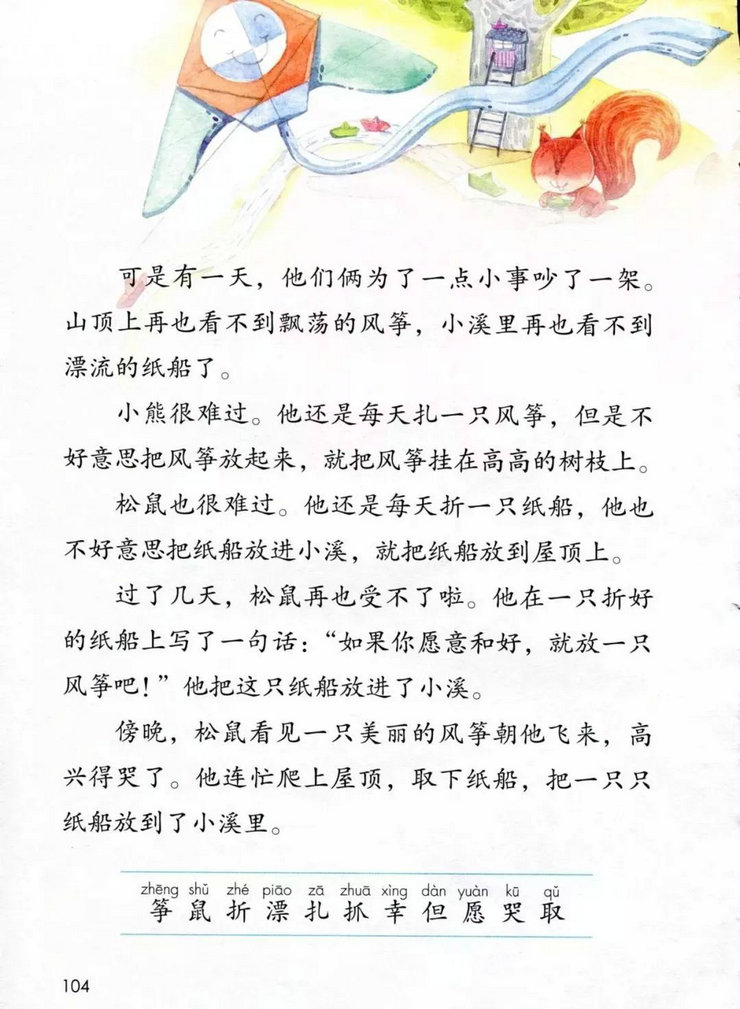 可是有一天，他们俩为了一点小事吵了一架。
山顶上再也看不到飘荡的风筝，小溪里再也看不到
漂流的纸船了。
小熊很难过。他还是每天扎一只风筝，但是不
好意思把风筝放起来，就把风筝挂在高高的树枝上。
松鼠也很难过。他还是每天折一只纸船，他也
不好意思把纸船放进小溪，就把纸船放到屋顶上。
过了几天，松鼠再也受不了啦。他在一只折好
的纸船上写了一句话：“如果你愿意和好，就放一只
风筝吧！”他把这只纸船放进了小溪。
傍晚，松鼠看见一只美丽的风筝朝他飞来，高
兴得哭了。他连忙爬上屋顶，取下纸船，把一只只
纸船放到了小溪里。
zhēng shǔ zhé piāo zā zhuā xìng dàn yuàn kū qǔ
筝 鼠 折 漂 扎 抓 幸 但 愿 哭 取
104